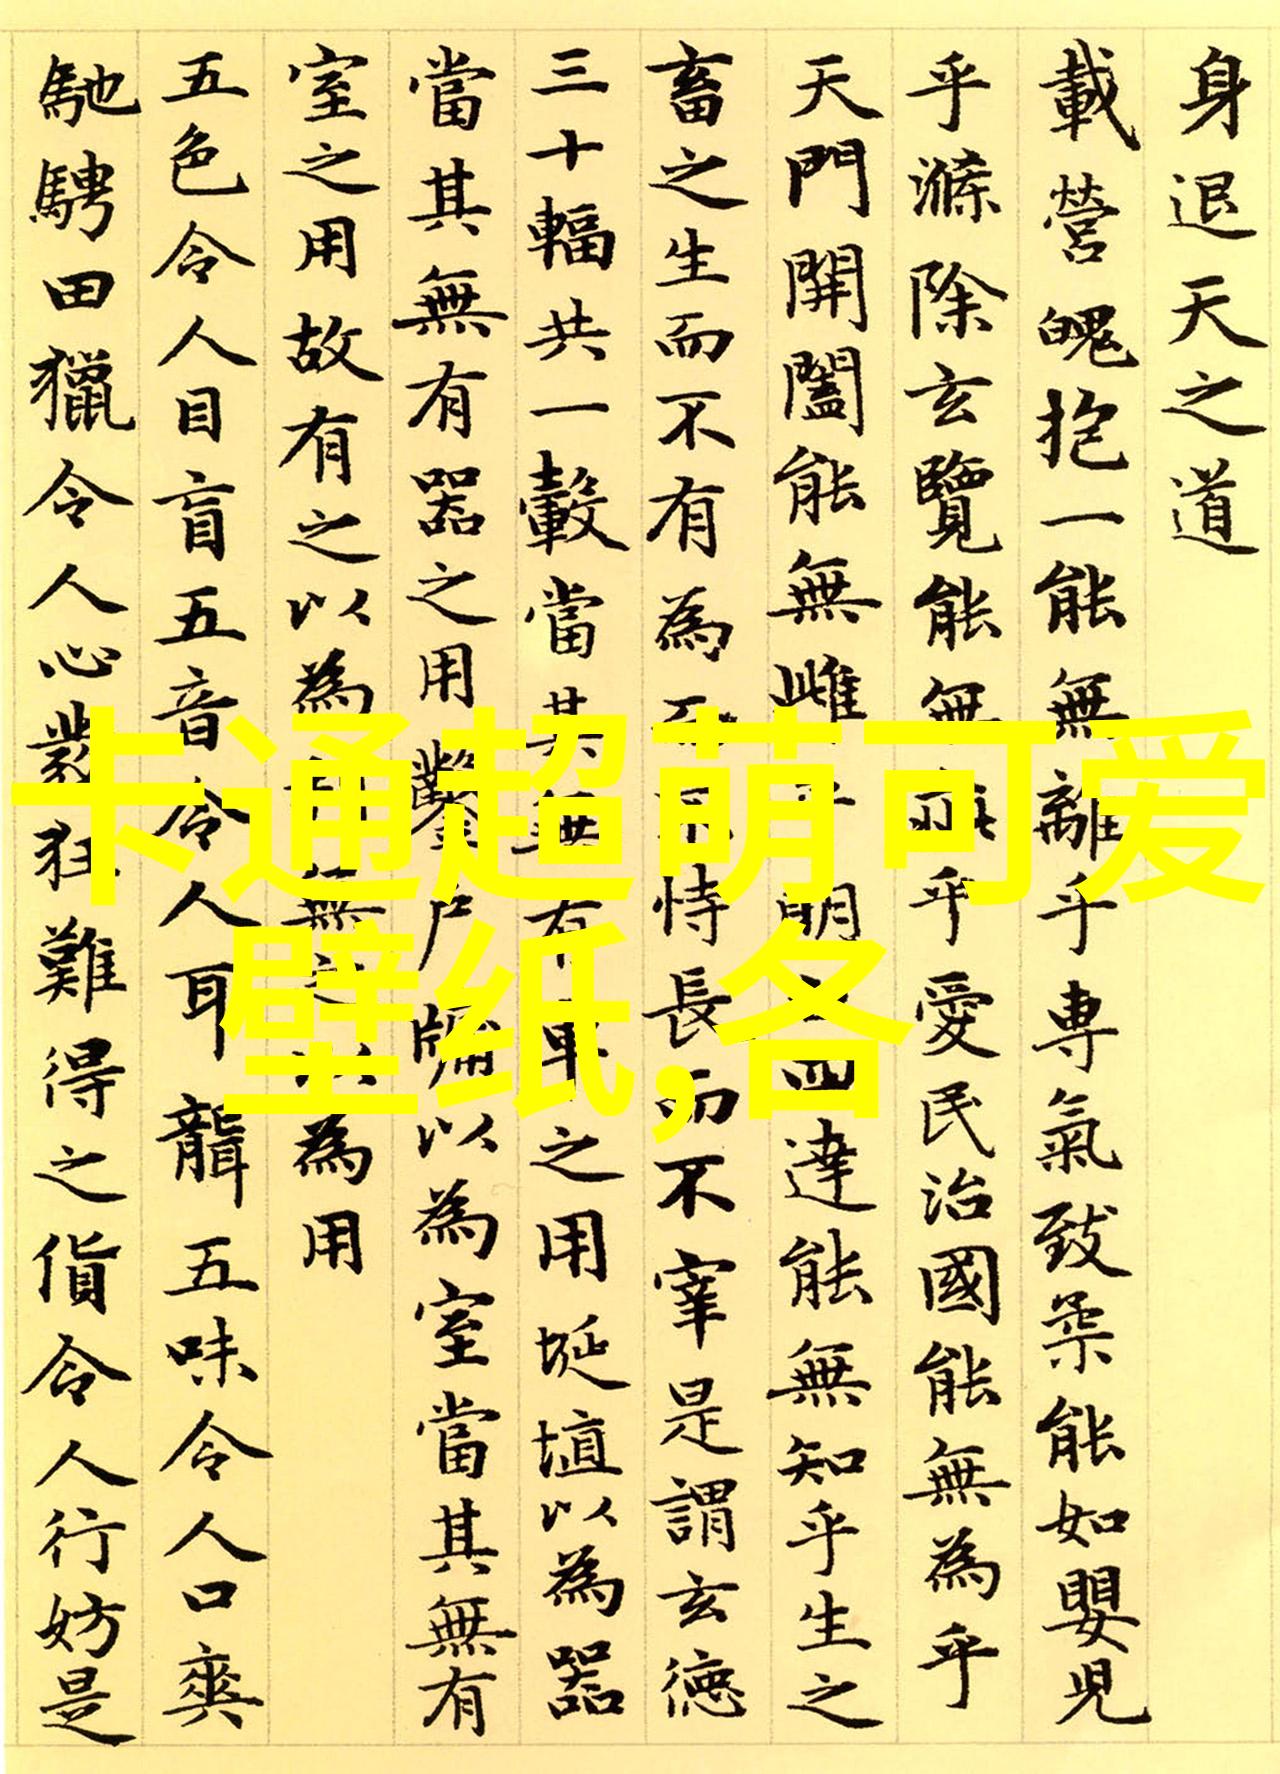 身退天之道
載營魄抱一能無離乎専氣致柔能如嬰児
乎滌除玄覽能無疵乎愛民治國能無為乎
天門開闔能無雌乎明四達能無知乎生之
畜之生而不有為不恃長而不宰是謂玄德
三十輻共一轂當其無有車之用埏埴以為器
當其無有器之用鑿戶牖以為室當其無有
室之用故有之以為利無之以為用
五色令人目盲五音令人耳聾五味令人口爽
馳騁田獵令人心發狂難得之貨令人行妨是
卡通超萌可爱
壁纸,各